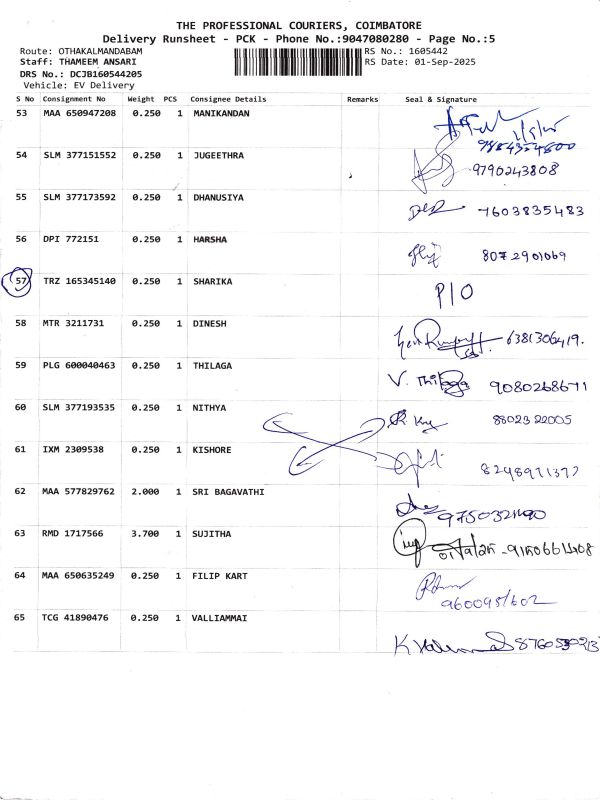 THE PROFESSIONAL COURIERS, COIMBATORE
Delivery Runsheet - PCK - Phone No.:9047080280 - Page No.:5
Route: OTHAKALMANDABAM RS No.: 1605442
Staff: THAMEEM ANSARI RS Date: 01-Sep-2025
DRS No.: DCJB160544205
Vehicle: EV Delivery
S No Consignment No Weight PCS Consignee Details Remarks Seal & Signature
53 MAA 650947208 0.250 1 MANIKANDAN
54 SLM 377151552 0.250 1 JUGEETHRA 9790243808
55 SLM 377173592 0.250 1 DHANUSIYA 7603835483
56 DPI 772151 0.250 1 HARSHA 8072901069
57 TRZ 165345140 0.250 1 SHARIKA P/O
58 MTR 3211731 0.250 1 DINESH 6381306419.
59 PLG 600040463 0.250 1 THILAGA V. Thilaga 9080268671
60 SLM 377193535 0.250 1 NITHYA 8802322005
61 IXM 2309538 0.250 1 KISHORE
62 MAA 577829762 2.000 1 SRI BAGAVATHI
63 RMD 1717566 3.700 1 SUJITHA
64 MAA 650635249 0.250 1 FILIP KART
65 TCG 41890476 0.250 1 VALLIAMMAI